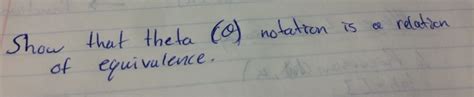 Show that theta (θ) notation is a relation
of equivalence.